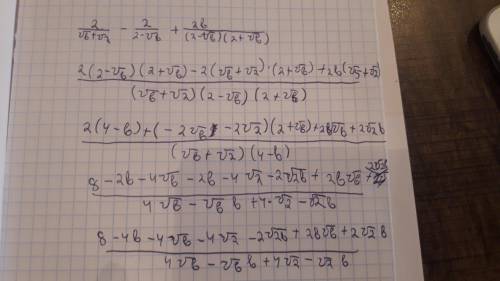 2/(√b+√2) - 2/(2-√b) + 2b/((2-√b)(2+√b))
(2(2-√b)(2+√b)-2(√b+√2)·(2+√b)+2b(√b+√2))/((√b+√2)(2-√b)(2+√b))
(2(4-b)+(-2√b-2√2)(2+√b)+2b√b+2√2b)/((√b+√2)(4-b))
(8-2b-4√b-2b-4√2-2√2b+2b√b+2√2b)/(4√b-√b b+4√2-√2b)
(8-4b-4√b-4√2-2√2b+2b√b+2√2 b)/(4√b-√b b+4√2-√2 b)